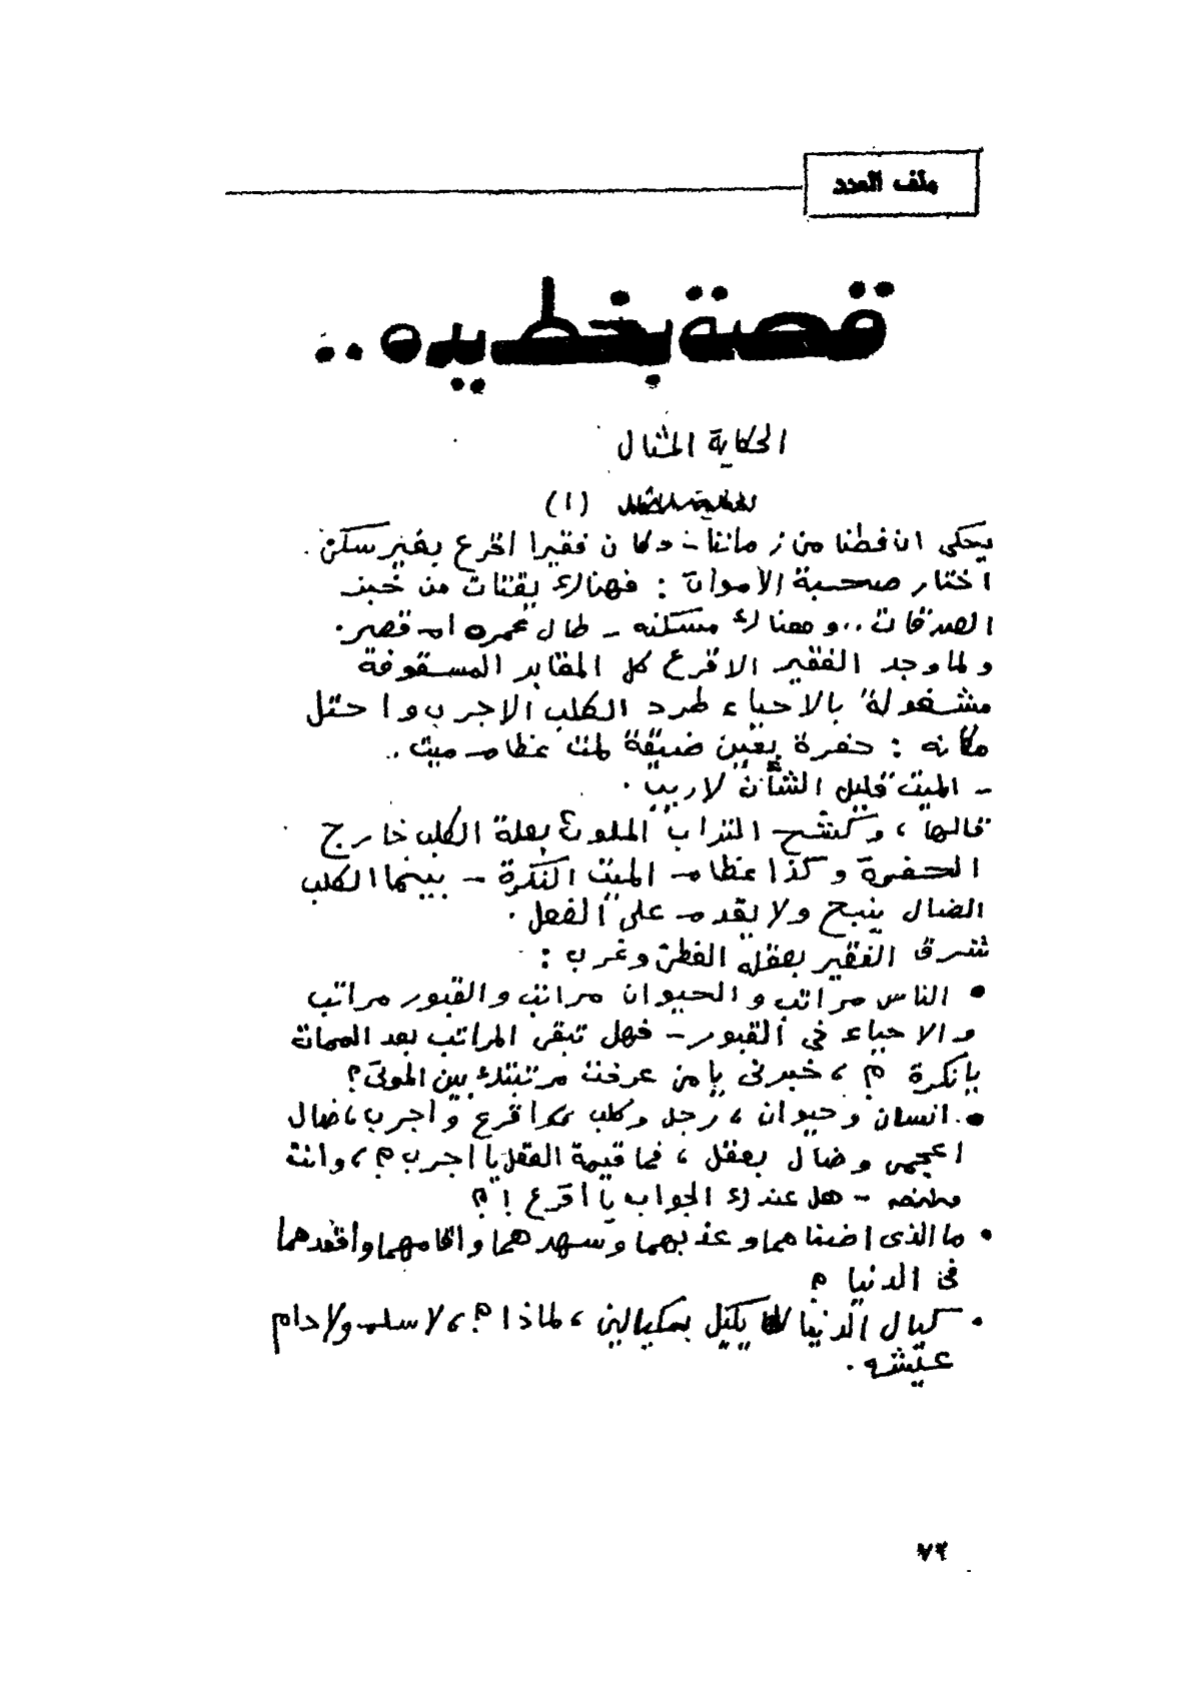 ملف العدد
قصة بخط يده ..
الحكاية المثال
(١)
يحكى ان فطنا من زماننا - وكان فقيرا اقرع بغير سكن .
اختار صحبة الأموات : فهناك يقتات من خبز
الصدقات .. وهناك مسكنه - طال عمره ام قصر .
ولما وجد الفقير الاقرع كل المقابر المسقوفة
مشغولة بالاحياء طرد الكلب الاجرب واحتل
مكانه : حفرة بعين ضيقة لمت عظام ميت ..
- الميت قليل الشأن لاريب .
قالها ، وكشح التراب الملوث بعلة الكلب خارج
الحفرة وكذا عظام الميت النكرة - بينما الكلب
الضال ينبح ولا يقدم على الفعل .
شرق الفقير بعقله الفطن وغرب :
• الناس مراتب والحيوان مراتب والقبور مراتب
والاحياء في القبور - فهل تبقى المراتب بعد الممات
يا نكرة ؟ ، خبرنى يا من عرفت مرتبتك بين الموتى ؟
• انسان وحيوان ، رجل وكلب ، اقرع واجرب ، ضال
اعجمى وضال بعقل ، فما قيمة العقل يا اجرب ؟ ، وانت
- هل عندك الجواب يا اقرع ! ؟
• ما الذى اضناهما وعذبهما وسهدهما واقامهما واقعدهما
في الدنيا ؟
• كيال الدنيا يكيل بمكيالين ، لماذا ؟ ، لا سلم ولا دام
عيشه .
٧٢